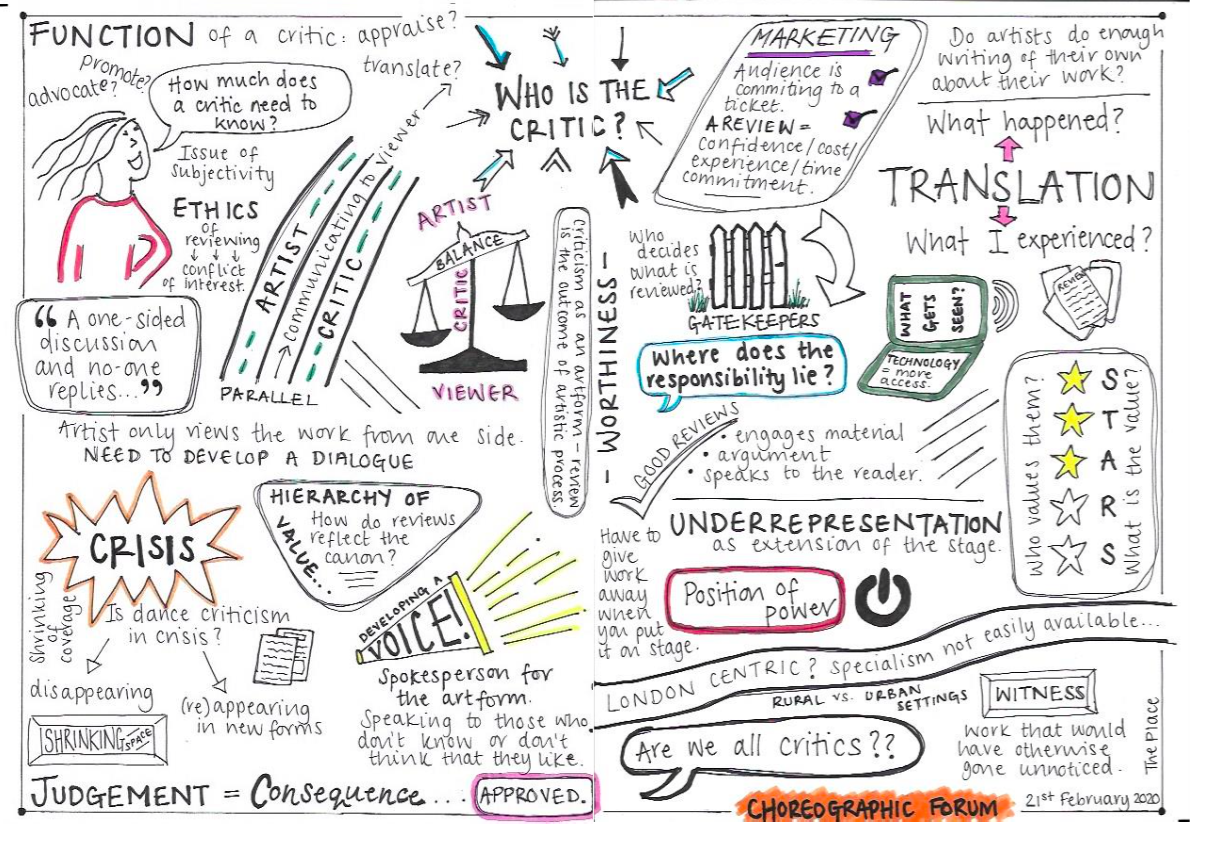 FUNCTION of a critic: appraise?
promote?
translate?
advocate?
How much does
a critic need to
know?
Issue of
Subjectivity
ETHICS
of
reviewing
conflict
of interest.
ARTIST
communicating to viewer
CRITIC
PARALLEL
WHO IS THE
CRITIC?
ARTIST
BALANCE
CRITIC
VIEWER
criticism as an artform - review
is the outcome of artistic process.
"A one-sided
discussion
and no-one
replies..."
Artist only views the work from one side.
NEED TO DEVELOP A DIALOGUE
CRISIS
Shrinking
of
coverage
Is dance criticism
in crisis?
disappearing
(re)appearing
in new forms
SHRINKING SPACE
HIERARCHY OF
VALUE...
How do reviews
reflect the
canon?
DEVELOPING A
VOICE!
Spokesperson for
the artform.
Speaking to those who
don't know or don't
think that they like.
JUDGEMENT = Consequence... APPROVED.
MARKETING
Audience is
commiting to a
ticket.
A REVIEW =
confidence/cost/
experience/time
commitment.
Do artists do enough
writing of their own
about their work?
What happened?
TRANSLATION
What I experienced?
- WORTHINESS -
Who
decides
what is
reviewed?
GATE-KEEPERS
Where does the
responsibility lie?
WHAT
GETS
SEEN?
TECHNOLOGY
= more
access.
REVIEW
GOOD REVIEWS
• engages material
• argument
• speaks to the reader.
Who values them?
STARS
What is the value?
UNDERREPRESENTATION
as extension of the stage.
Have to
give
work
away
when
you put
it on stage.
Position of
power
LONDON CENTRIC? Specialism not easily available...
RURAL VS. URBAN
SETTINGS
WITNESS
Work that would
have otherwise
gone unnoticed.
Are we all critics??
The Place
CHOREOGRAPHIC FORUM
21st February 2020